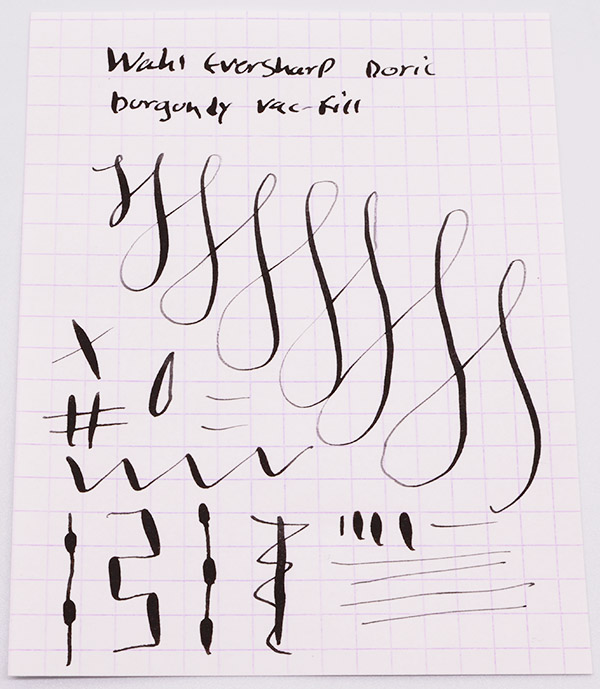 Wahl Eversharp Doric
burgundy vac-fill